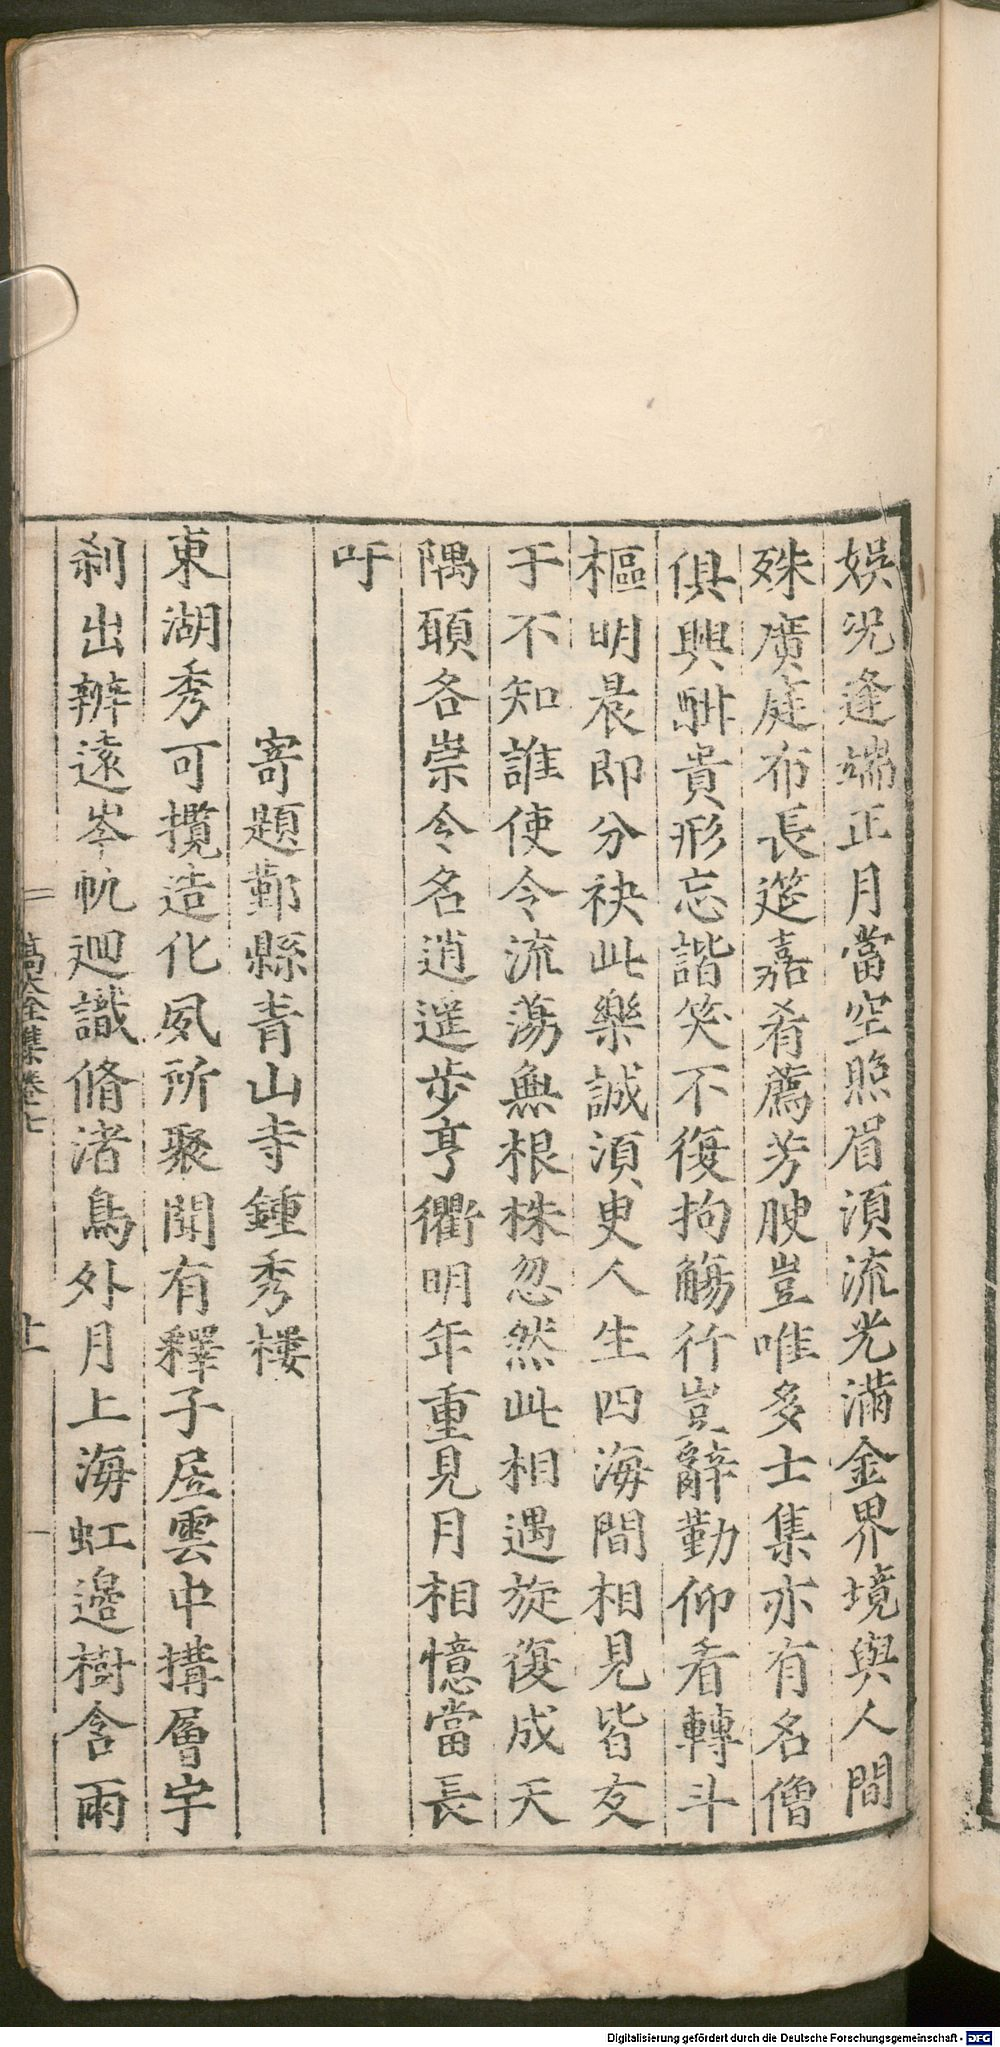 娛況逢端正月當空照眉須流光滿金界境與人間
殊廣庭布長筵嘉肴薦芳腴豈唯多士集亦有名僧
俱興酣貴形忘諧笑不復拘觴行豈辭勤仰看轉斗
樞明晨即分袂此樂誠須臾人生四海間相見皆友
于不知誰使令流蕩無根株忽然此相遇旋復成天
隅願各崇令名逍遥步亨衢明年重見月相憶當長
吁
寄題鄞縣青山寺鍾秀樓
東湖秀可攬造化夙所聚聞有釋子居雲中搆層宇
刹出辨遠岑帆迴識脩渚鳥外月上海虹邊樹含雨
高太全集卷七
十一
Digitalisierung gefördert durch die Deutsche Forschungsgemeinschaft - DFG